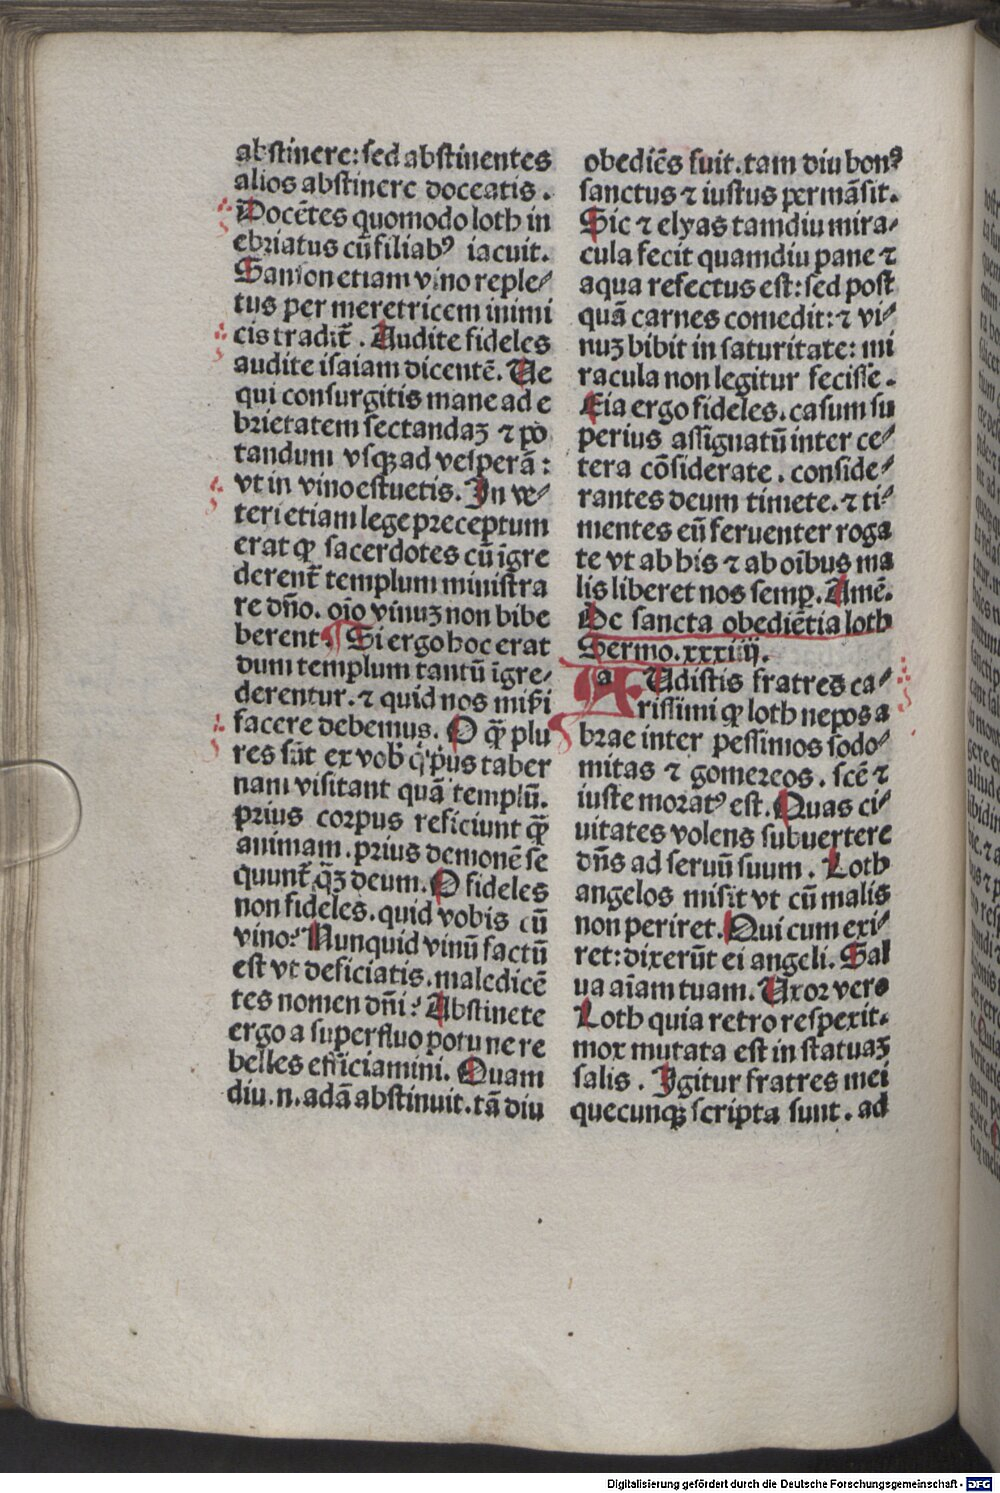 abstinere: sed abstinentes
alios abstinere doceatis.
Docẽtes quomodo loth in
ebriatus cũ filiabꝰ iacuit.
Sanson etiam vino reple⸗
tus per meretricem inimi
cis tradit̃. Audite fideles
audite isaiam dicentẽ. Ue
qui consurgitis mane ad e
brietatem sectandaꝫ ⁊ po
tandum vsqꝫ ad vesperã:
vt in vino estuetis. In ve⸗
teri etiam lege preceptum
erat ꝙ sacerdotes cũ ĩgre
derent̃ templum ministra
re dño. oĩo vinuꝫ non bibe
berent. Si ergo hoc erat
dum templum tantũ ĩgre⸗
derentur. ⁊ quid nos mis̃i
facere debemus. O ꝙ̃ plu
res sũt ex vob̾ q̇ ṗus taber
nam visitant quã templũ.
prius corpus reficiunt ꝙ̃
animam. prius demonẽ se
quunt̃ q̃ꝫ deum. O fideles
non fideles. quid vobis cũ
vino? Nunquid vinũ factũ
est vt deficiatis. maledicẽ
tes nomen dñi? Abstinete
ergo a superfluo potu ne re
belles efficiamini. Quam
diu .n. adã abstinuit. tã diu
obediẽs fuit. tam diu bonꝰ
sanctus ⁊ iustus permãsit.
Sic ⁊ elyas tamdiu mira⸗
cula fecit quamdiu pane ⁊
aqua refectus est: sed post
quã carnes comedit: ⁊ vi⸗
nuꝫ bibit in saturitate: mi
racula non legitur fecisse.
Eia ergo fideles. casum su
perius assignatũ inter ce⸗
tera cõsiderate. conside⸗
rantes deum timete. ⁊ ti⸗
mentes eũ feruenter roga
te vt ab his ⁊ ab oĩbus ma
lis liberet nos semꝑ. Amẽ.
De sancta obediẽtia loth
Sermo. xxxiiij.
aUdistis fratres ca⸗
rissimi ꝙ loth nepos a
brae inter pessimos sodo⸗
mitas ⁊ gomereos. scẽ ⁊
iuste moratꝰ est. Quas ci⸗
uitates volens subuertere
dñs ad seruũ suum. Loth
angelos misit vt cũ malis
non periret. Qui cum exi⸗
ret: dixerũt ei angeli. Sal
ua aĩam tuam. Uxor vero
Loth quia retro respexit.
mox mutata est in statuaꝫ
salis. Igitur fratres mei
quecunqꝫ scripta sunt. ad
Digitalisierung gefördert durch die Deutsche Forschungsgemeinschaft - DFG